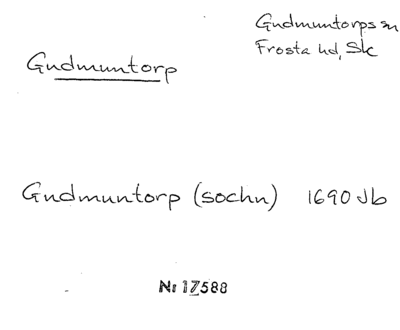 Gudmuntorps sn
Frosta hd, Sk
Gudmuntorp
Gudmuntorp (sochn) 1690 Jb
Nr 17588